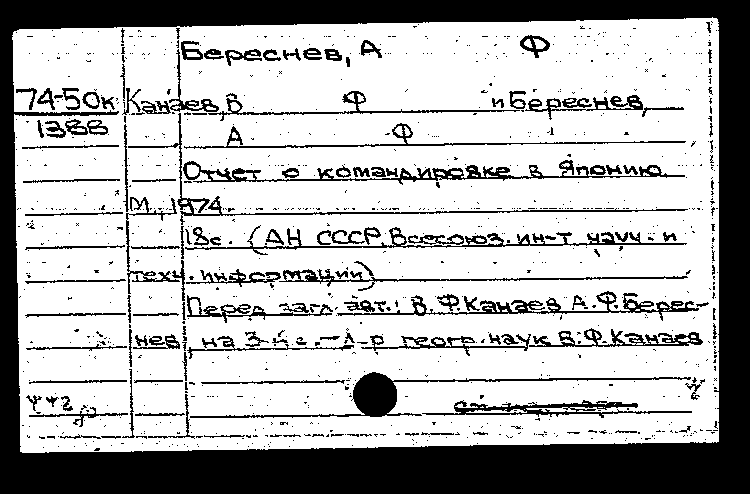 Береснев, А Ф
74-50к Канаев, В Ф и Береснев,
1388 А Ф
Отчет о командировке в Японию
М., 1974.
18с. (АН СССР, Всесоюз. ин-т науч. и
техн. информации)
Перед загл. авт.: В.Ф.Канаев, А.Ф.Берес-
нев, на 3-й с. - д-р геогр. наук В.Ф.Канаев